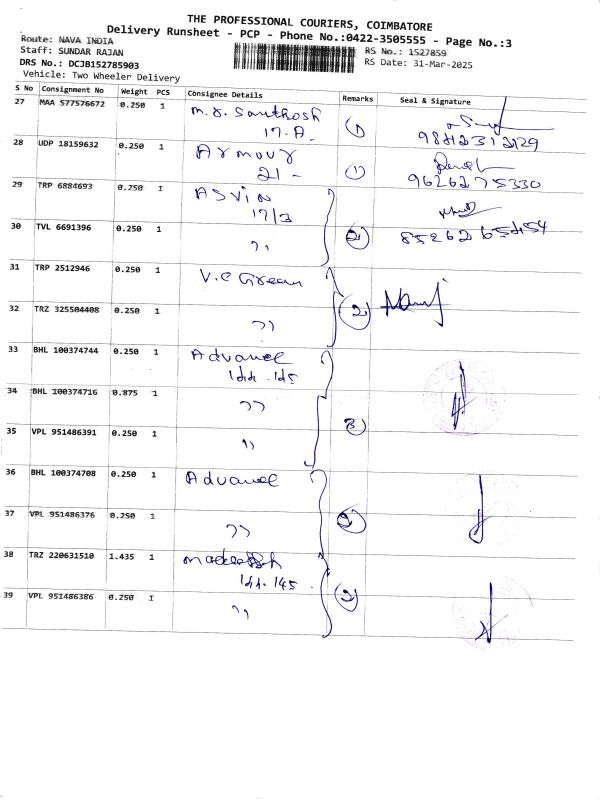 THE PROFESSIONAL COURIERS, COIMBATORE
Delivery Runsheet - PCP - Phone No.:0422-3505555 - Page No.:3
Route: NAVA INDIA
Staff: SUNDAR RAJAN
RS No.: 1527859
DRS No.: DCJB152785903
RS Date: 31-Mar-2025
Vehicle: Two Wheeler Delivery
S No Consignment No Weight PCS Consignee Details Remarks Seal & Signature
27 MAA 577576672 0.250 1 M.G. Santhosh
17.A. 1 9842312129
28 UDP 18159632 0.250 1 Armour
21 - 1 9626275330
29 TRP 6884693 0.250 1 Asvin
17/3
30 TVL 6691396 0.250 1 " 2 8526265454
31 TRP 2512946 0.250 1 V.C Green
32 TRZ 325504408 0.250 1 " 2
33 BHL 100374744 0.250 1 Advanel
144-145
34 BHL 100374716 0.875 1 "
35 VPL 951486391 0.250 1 " 3
36 BHL 100374708 0.250 1 Advanel
37 VPL 951486376 0.250 1 " 2
38 TRZ 220631510 1.435 1
144-145
39 VPL 951486386 0.250 1 " 2